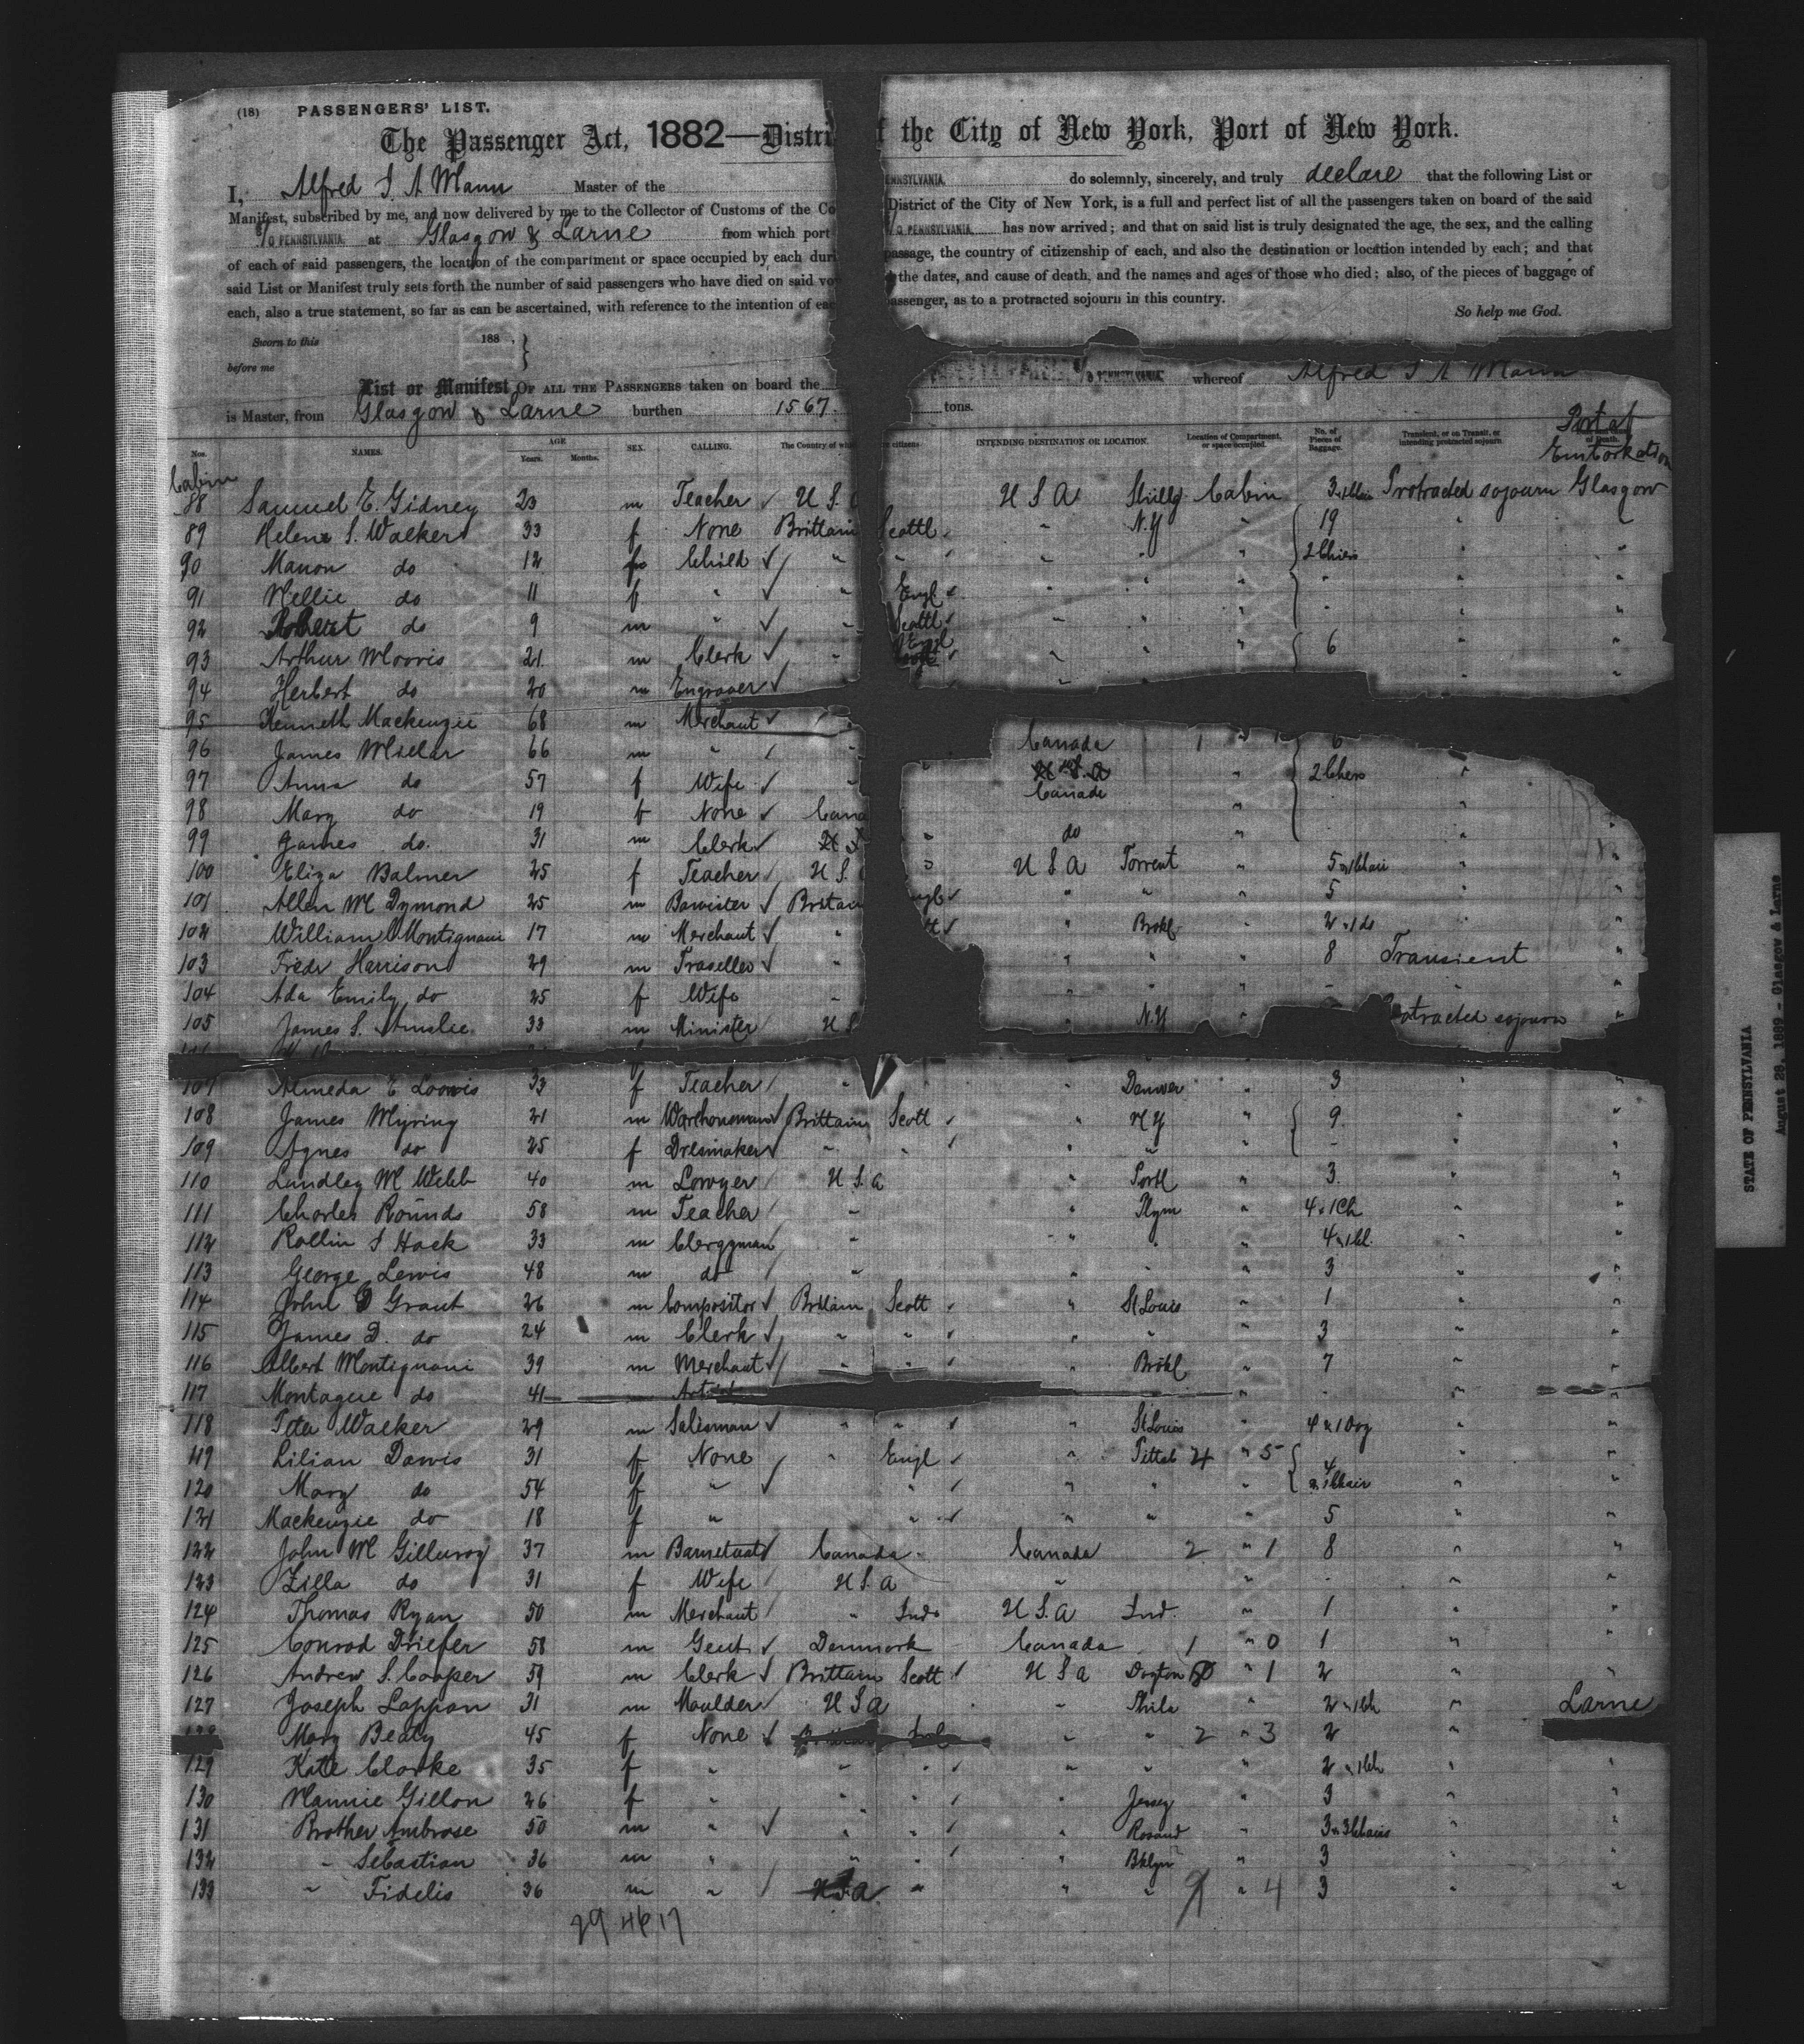 (18) PASSENGERS' LIST.
The Passenger Act, 1882—Distri f the City of New York, Port of New York.
I, Alfred J. A Mann Master of the PENNSYLVANIA. do solemnly, sincerely, and truly declare that the following List or
Manifest, subscribed by me, and now delivered by me to the Collector of Customs of the Co District of the City of New York, is a full and perfect list of all the passengers taken on board of the said
S/O PENNSYLVANIA. at Glasgow & Larne from which port S/O PENNSYLVANIA. has now arrived; and that on said list is truly designated the age, the sex, and the calling
of each of said passengers, the location of the compartment or space occupied by each duri passage, the country of citizenship of each, and also the destination or location intended by each; and that
said List or Manifest truly sets forth the number of said passengers who have died on said vo the dates, and cause of death, and the names and ages of those who died; also, of the pieces of baggage of
each, also a true statement, so far as can be ascertained, with reference to the intention of eac passenger, as to a protracted sojourn in this country.
So help me God.
Sworn to this 188 .
before me
List or Manifest OF ALL THE PASSENGERS taken on board the S/O PENNSYLVANIA. whereof Alfred J A Mann
is Master, from Glasgow & Larne burthen 1567. tons.
Port of Embarkation
Nos. NAMES. AGE Years. Months. SEX. CALLING. The Country of whi citizens INTENDING DESTINATION OR LOCATION. Location of Compartment, or space occupied. No. of Pieces of Baggage. Transient, or on Transit, or intending protracted sojourn of Death.
Cabin
88 Samuel E. Gidney 23 m Teacher U.S. U S A Cabin 3 Protracted sojourn Glasgow
89 Helen S. Walker 33 f None Brittain N.Y " 19 " "
90 do 12 Child " " " " " "
91 Nellie do 11 f " " Engl " " " " " "
92 Robert do 9 m " " " " " " "
93 Arthur Morris 21 m Clerk " " " " 6 " "
94 Herbert do 20 m Engraver "
95 Kenneth Mackenzie 68 m Merchant "
96 James Millar 66 m " " Canada 1 6
97 Anna do 57 f Wife " Canada " "
98 Mary do 19 f None Cana " " "
99 James do. 31 m Clerk do " " "
100 Eliza Balmer 25 f Teacher U S U S A Torrent " 5 " "
101 Allen M Dymond 25 m Barrister Brittain ngl " " " 5 " "
102 William Montignani 17 m Merchant " tt " Brokl " 2 " "
103 Fredr Harrison 29 m Traveller " " " " 8 Transient "
104 Ada Emily do 25 f Wife " " " " - " "
105 James S. Ainslie 33 m Minister U S " N.Y otracted sojourn "
107 Almeda E Loomis 33 f Teacher " " Denver " 3 " "
108 James Myring 21 m Warehouseman Brittain Scott " N Y " 9 " "
109 Agnes do 25 f Dresmaker " " " " " - " "
110 M Webb 40 m Lawyer U.S.a " Portl " 3. " "
111 Charles Rounds 58 m Teacher " " Plym " 4 & 1Ch " "
112 Rollin S Hack 33 m Clergyman " " " " 4 " "
113 George Lewis 48 m do " " " " 3 " "
114 John D Grant 26 m Compositor Brittain Scott " St Louis " 1 " "
115 James D. do 24 m Clerk " " " " " 3 " "
116 Albert Montignani 39 m Merchant " " " Brokl " 7 " "
117 Montague do 41 " " " "
118 Walker 29 m Salesman " " " St Louis " 4 & 1 Dog " "
119 Lilian Davis 31 f None " Engl " 4 " 5 4 " "
120 Mary do 54 f " " " " " & 1 Chair " "
121 Mackenzie do 18 f " " " " 5 " "
122 John M Gillivray 37 m Canada Canada 2 " 1 8 " "
123 Zilla do 31 f Wife U.S.a " " " "
124 Thomas Ryan 50 m Merchant " Ind U S.a Ind. " 1 " "
125 Conrad 58 m Gent Denmark Canada 1 " 0 1 " "
126 Andrew S. Cooper 59 m Clerk Brittain Scott U S a Dayton " 1 2 " "
127 Joseph Lappan 31 m Moulder U S a " Phila " 2 & 1 Ch " Larne
Mary Beaty 45 f None " " 2 " 3 2 "
129 Kate Clarke 35 f " " " " " " 2 & 1 Ch " "
130 Mannie Gillon 26 f " " " " Jersey " 3 " "
131 Brother Ambrose 50 m " " " " " 3 & 3 Chairs " "
132 " Sebastian 36 m " " " " Bklyn " 3 " "
133 " Fidelis 36 m " U.S.a. " " " " 4 3 " "
29 46 17
STATE OF PENNSYLVANIA
August 28, 1889 - Glasgow & Larne